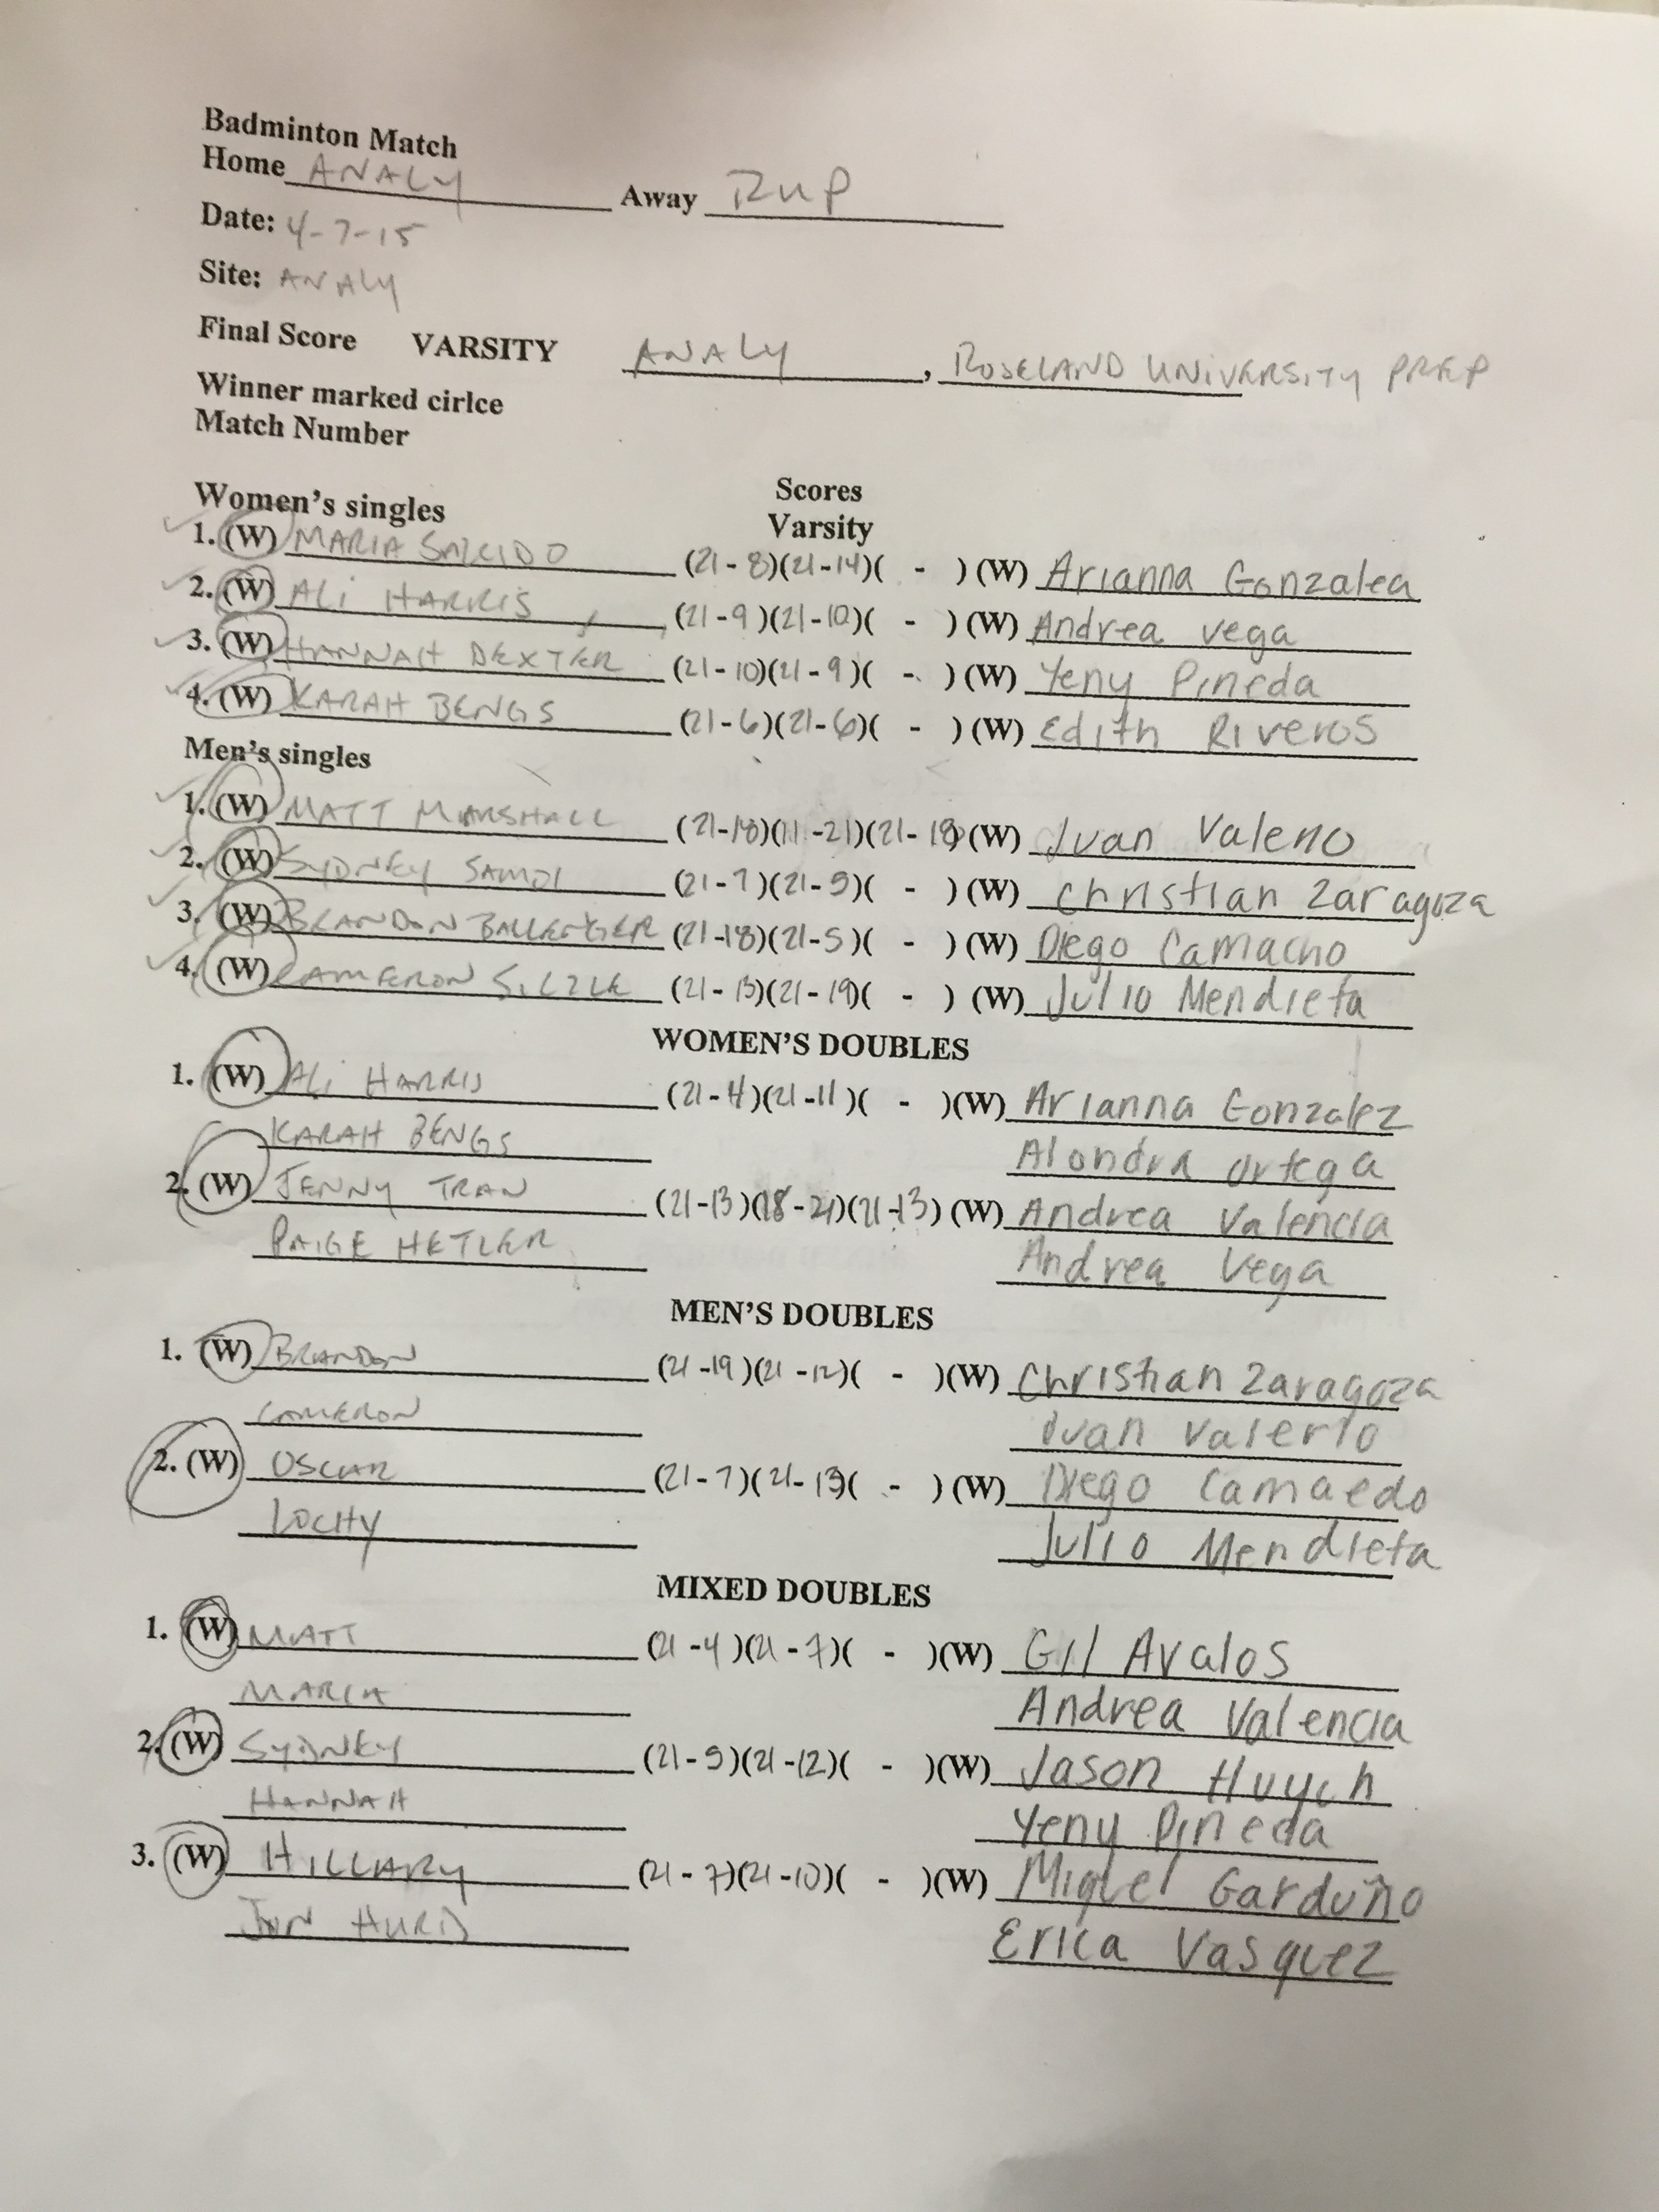 Badminton Match
Home ANALY Away RUP
Date: 4-7-15
Site: ANALY
Final Score VARSITY ANALY, ROSELAND UNIVERSITY PREP
Winner marked cirlce
Match Number
Women's singles Scores
Varsity
1. (W) MARIA SALCIDO (21-8)(21-14)( - ) (W) Arianna Gonzalea
2. (W) ALI HARRIS (21-9)(21-10)( - ) (W) Andrea Vega
3. (W) HANNAH DEXTER (21-10)(21-9)( - ) (W) Yeny Pineda
4. (W) KARAH BENGS (21-6)(21-6)( - ) (W) Edith Riveros
Men's singles
1. (W) MATT MARSHALL (21-18)(11-21)(21-18) (W) Juan Valeno
2. (W) SYDNEY (21-7)(21-9)( - ) (W) Christian Zaragoza
3. (W) BRANDON BALLENGER (21-18)(21-5)( - ) (W) Diego Camacho
4. (W) CAMERON (21-13)(21-19)( - ) (W) Julio Mendieta
WOMEN'S DOUBLES
1. (W) ALI HARRIS (21-4)(21-11)( - )(W) Arianna Gonzalez
KARAH BENGS Alondra Ortega
2. (W) JENNY TRAN (21-13)(18-21)(21-13) (W) Andrea Valencia
PAIGE HETLER Andrea Vega
MEN'S DOUBLES
1. (W) BRANDON (21-19)(21-12)( - )(W) Christian Zaragoza
CAMERON Juan Valerio
2. (W) OSCAR (21-7)(21-13( - ) (W) Diego Camaedo
LOCHY Julio Mendieta
MIXED DOUBLES
1. (W) MATT (21-4)(21-7)( - )(W) Gil Avalos
MARIA Andrea Valencia
2. (W) SYDNEY (21-9)(21-12)( - )(W) Jason Huych
HANNAH Yeny Pineda
3. (W) HILLARY (21-7)(21-10)( - )(W) Miguel Garduño
JON HURD Erica Vasquez